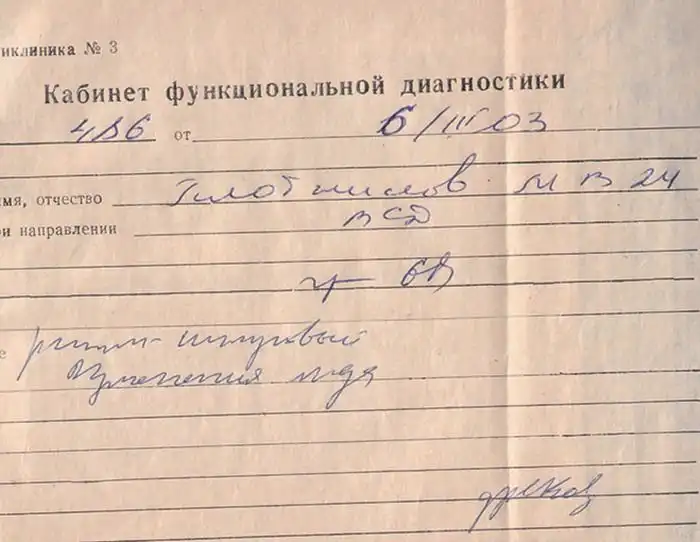 иклиника № 3
Кабинет функциональной диагностики
486 от 6/III 03
мя, отчество Плотников М В 24
ри направлении ВСД
68
е ритм-синусовый
Изменения